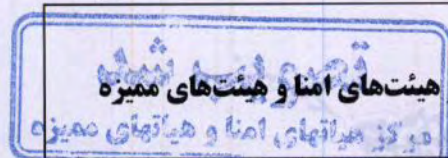 تصویب شد
هیئت‌های امنا و هیئت‌های ممیزه
مرکز هیاتهای امنا و هیاتهای ممیزه